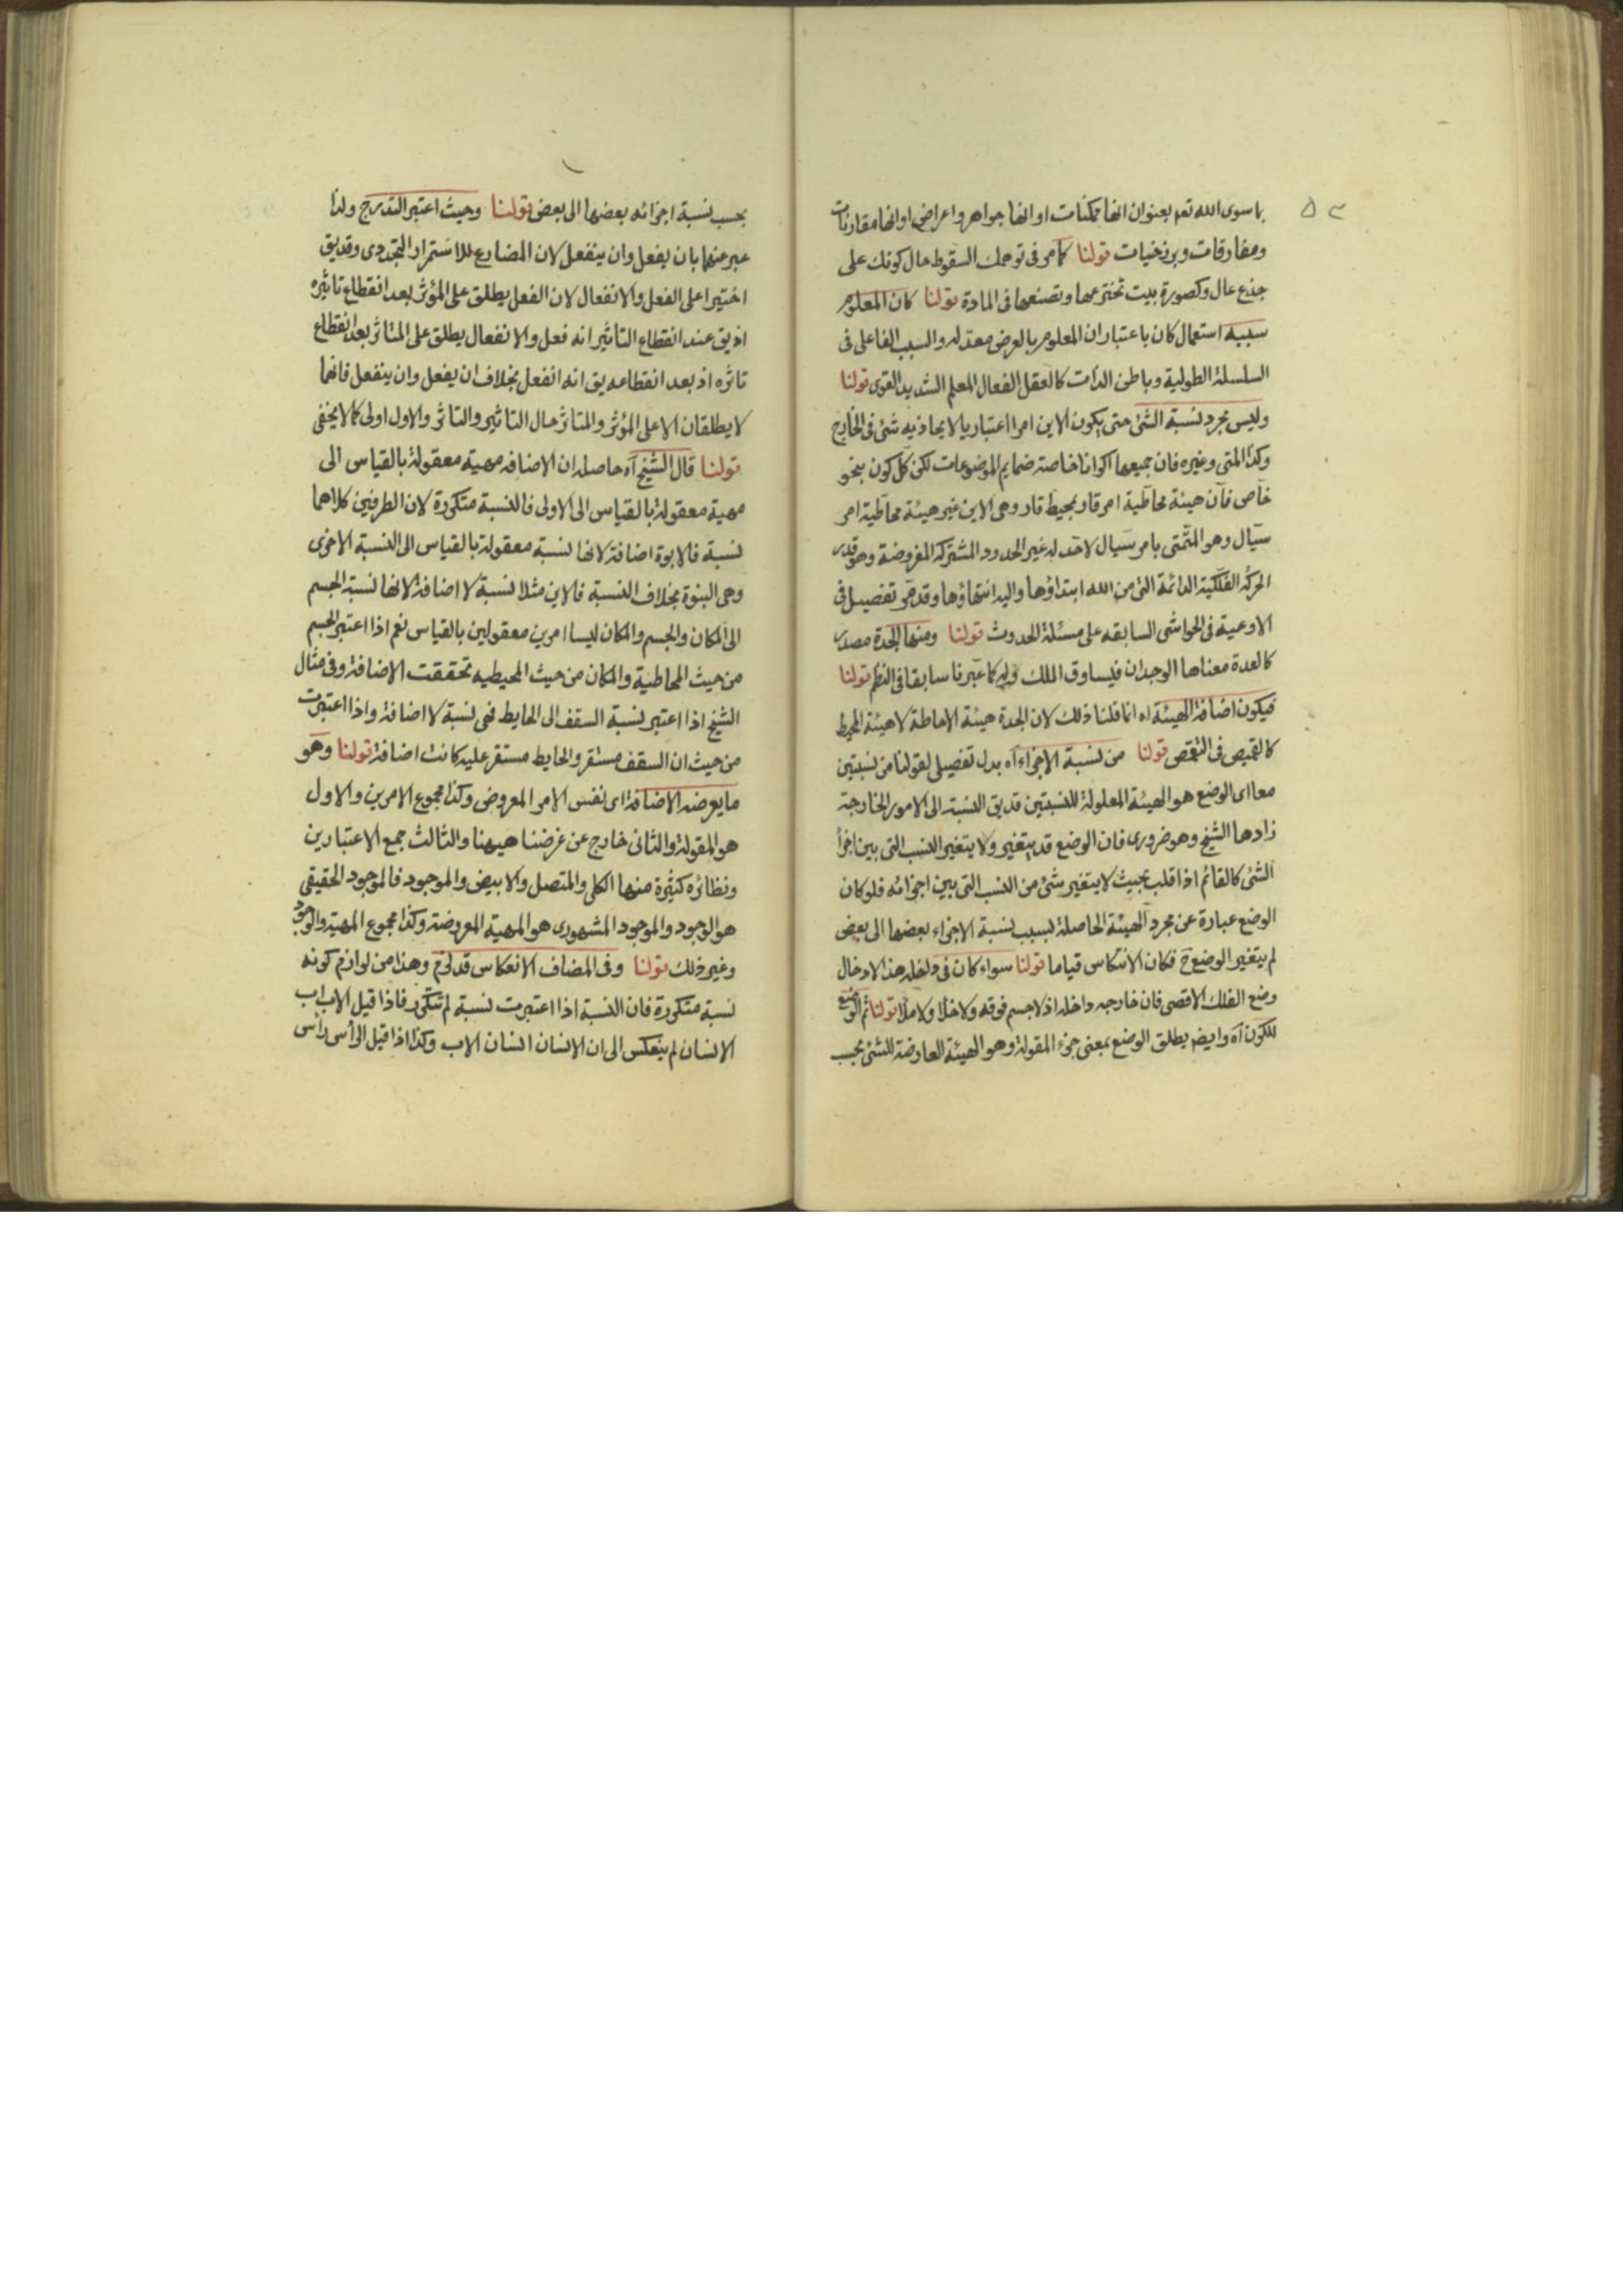 ۵۳
ما سوى الله تعم بعنوان انها ممكنات او انها جواهر واعراض او انها مقارنات
ومفارقات وبرزخيات قولنا كما مر فى توهمك السقوط حال كونك على
جذع عال وكصورة بيت تخترعها وتصنعها فى المادة قولنا كان المعلوم
سببه استعمال كان باعتبار ان المعلوم بالعرض معد له والسبب الفاعلى فى
السلسلة الطولية وباطن الذات كالعقل الفعال المعلم الشديد القوى قولنا
وليس مجرد نسبة الشئ حتى يكون الاين امرا اعتباريا لا يحاذيه شئ فى الخارج
وكذا المتى وغيره فان جميعها اكوانا خاصة ضمايم الموضوعات لكن كل كون بنحو
خاص فان هيئة محاطية امر قار بمحيط قار وهى الاين غير هيئة محاطية امر
سيال وهو المتمتى بامر سيال لا حد له غير الحدود المشتركة المفروضة وهو قدر
الحركة الفلكية الدائمة التى من الله ابتداؤها واليه انتهاؤها وقد مر تفصيل فى
الاوعية فى الحواشى السابقه على مسئلة الحدوث قولنا ومنها الجدة مصدر
كالعدة معناها الوجدان فليساوق الملك وله كما عبرنا سابقا فى النظم قولنا
فيكون اضافة الهيئة اه انما قلنا ذلك لان الجدة هيئة الاحاطة لا هيئة المحيط
كالقميص فى التقمص قولنا من نسبة الاجزاء آه بدل تفصيلى لقولنا من نسبتين
معا اى الوضع هو الهيئة المعلولة للنسبتين قد يق النسبة الى الامور الخارجة
زادها الشيخ وهو ضرورى فان الوضع قد يتغير ولا يتغير النسب التى بين اجزأ
الشئ كالقائم اذا اقلب بحيث لا يتغير شئ من النسب التى بين اجزائه فلو كان
الوضع عبارة عن مجرد الهيئة الحاصلة بسبب نسبة الاجزاء بعضها الى بعض
لم يتغير الوضع ح فكان الانتكاس قياما قولنا سواء كان فى داخله هذا لادخال
وضع الفلك الاقصى فان خارجه داخله اذ لا جسم فوقه ولا خلأ ولا ملأ قولنا ثم الوضع
للكون آه وايض يطلق الوضع بمعنى جزء المقولة وهو الهيئة العارضة للشئ بحسب
بحسب نسبة اجزائه بعضها الى بعض قولنا وحيث اعتبر التدرج ولذا
عبر عنهما بان يفعل وان ينفعل لان المضارع للاستمرار التجددى وقد يق
اختيرا على الفعل والانفعال لان الفعل يطلق على المؤثر بعد انقطاع تاثيره
اذ يق عند انقطاع التاثير انه فعل والانفعال يطلق على المتاثر بعد انقطاع
تاثره اذ بعد انقطاعه يق انه انفعل بخلاف ان يفعل وان ينفعل فانهما
لا يطلقان الا على المؤثر والمتاثر حال التاثير والتاثر والاول اولى كما لا يخفى
قولنا قال الشيخ آه حاصله ان الاضافه مهية معقولة بالقياس الى
مهية معقولة بالقياس الى الاولى فالنسبة متكررة لان الطرفين كلاهما
نسبة فالابوة اضافة لانها نسبة معقولة بالقياس الى النسبة الاخرى
وهى البنوة بخلاف النسبة فالاين مثلا نسبة لا اضافة لانها نسبة الجسم
الى المكان والجسم والمكان ليسا امرين معقولين بالقياس نعم اذا اعتبر الجسم
من حيث المحاطية والمكان من حيث المحيطيه تحققت الاضافة وفى مثال
الشيخ اذا اعتبر نسبة السقف الى الحايط فهى نسبة لا اضافة واذا اعتبرت
من حيث ان السقف مستقر والحايط مستقر عليه كانت اضافة قولنا وهو
ما يعرضه الاضافة اى نفس الامر المعروض وكذا مجموع الامرين والاول
هو المقولة والثانى خارج عن غرضنا هيهنا والثالث جمع الاعتبارين
ونظائره كثيرة منها الكلى والمتصل والابيض والموجود فالموجود الحقيقى
هو الوجود والموجود المشهورى هو المهية المعروضة وكذا مجموع المهية والوجود
وغير ذلك قولنا وفى المضاف الانعكاس قد لزم وهذا من لوازم كونه
نسبة متكررة فان النسبة اذا اعتبرت نسبة لم تتكرر فاذا قيل الاب اب
الانسان لم ينعكس الى ان الانسان انسان الاب وكذا اذا قيل الرأس رأس